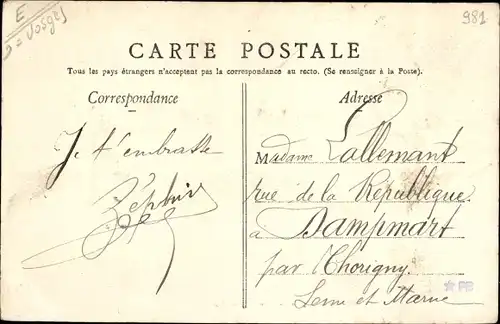 E
= Vosges
981
CARTE POSTALE
Tous les pays étrangers n'acceptent pas la correspondance au recto. (Se renseigner à la Poste).
Correspondance
Adresse
Je t'embrasse
Zéphir
Madame Lallemant
rue de la République
à Dampmart
par l'Chorigny
Seine et Marne
PB